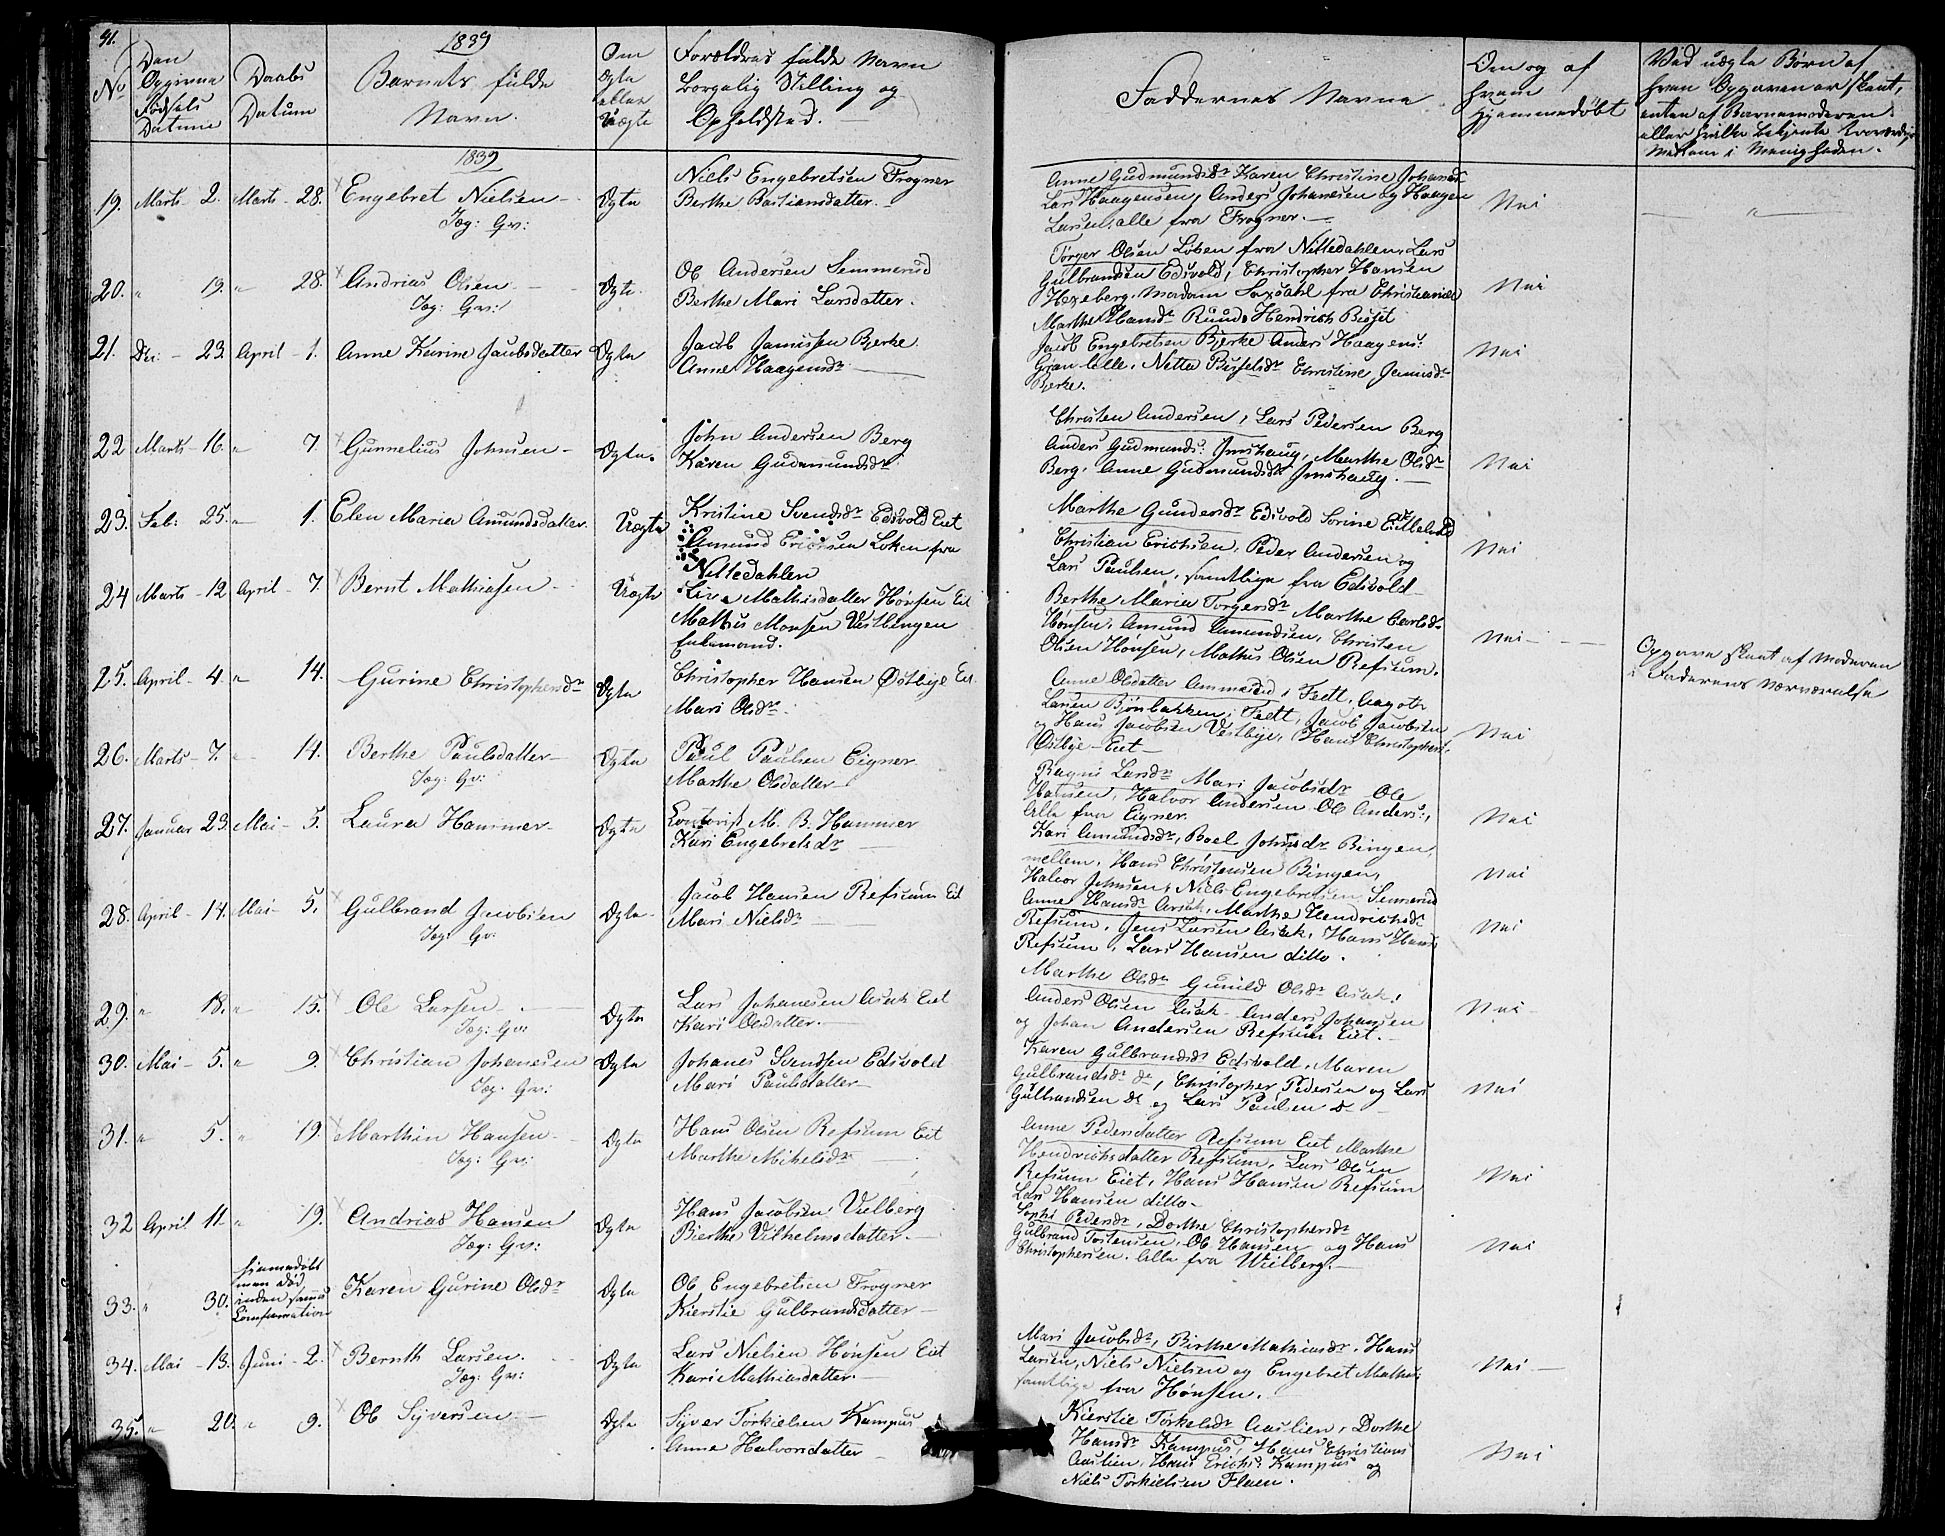 41.
1839
No
Den Opgivne Fødsels Datum
Daabs Datum
Barnets fulde Navn.
Om Ægte eller Uægte
Forældres fulde Navn Borgelig Stilling og Opholdsted.
Faddernes Navne
Om og af hvem Hjemmedøbt
Ved uægte Børn af hven Opgaven er skeet, enten af Barnemoderen eller hvilke bekjente troværdige Medlem i Menigheden.
1839
19. Marts 2. Marts 28. Engebret Nielsen
Jag: Gv:
Ægte
Niels Engebretsen Frogner
Berthe Bastiansdatter.
Anne Gudmundsdr Karen Christine Johansdr
Lars Haagensen, Anders Johanesen og Haagen
Larsen, alle fra Frogner.
Nei
"
20. " 19. " 28. Andrias Olsen
Jag: Gv:
Ægte.
Ole Andersen Semmerud
Berthe Mari Larsdatter.
Torger Olsen Løken fra Nittedahlen, Lars
Gulbrandsen Edsvold, Christopher Hansen
Hexeberg. Madam Saxdahl fra Christiania
Nei
21. Dec 23. April 1. Anne Karine Jacobsdatter
Ægte
Jacob Jamissen Bjerke
Anne Haagensdr
Marthe Hansdr Ruud, Hendrich
Jacob Engebretsen Bjerke Anders Haagens:
Grønlille, Netta Christine Jamisdr
Bjerke.
Nei
22 Marts 16. " 7. Gunnelius Johnsen
Ægte.
John Andersen Berg
Karen Gudmundsdr
Christen Andersen, Lars Pedersen Berg
Anders Gudmunds: Jmshaug, Marthe Olsdr
Berg, Anne Gudmundsdr Jmshaug.
Nei
23. Feb: 25. " 1. Elen Maria Amundsdatter.
Uægte
Kristine Svendsdr Edsvold Eiet
Amund Erichsen Løken fra
Nittedahlen
Marthe Gundersdr Edsvold Sorine
Christian Erichsen, Peder Andersen og
Lars Paulsen, samtlige fra Edsvold
Nei
24 Marts 12 April 7. Bernt Mathiasen
Uægte
Mathisdatter Hønsen Eiet
Mathis Monsen Vestlengen
Enkemand.
Berthe Maria Torgersdr Marthe Carlsdr
Hønsen, Amund Amundsen, Christen
Olsen Hønsen, Mathis Olsen Refsum.
Nei
Opgave skeet af Moderen
i Faderens Nærværelse
25. April 4. " 14. Gurine Christophersdr
Ægte
Christopher Hansen Østbye Ei.
Mari Olsdr.
Anne Olsdatter Fedt,
Larsen Bjønbakken, Fedt, Jacob Jacobsen
og Hans Jacobsen Vestbye, Hans Christophers:
Østbye Eiet
Nei
26. Marts 7. " 14. Berthe Paulsdatter
Jag: Gv:
Ægte
Paul Paulsen Eigner
Marthe Olsdatter
Ragni Larsdr Mari Jacobsdr Ole
Hansen, Halvor Andersen Ole Anders:,
Alle fra Eigner.
Nei
27. Januar 23. Mai 5. Laura Hammer
Ægte
M. B. Hammer
Kari Engebretsdr
Kari Amundsdr, Boel Johnsdr Bingen,
mellem, Hans Christensen Bingen,
Halvor Johnsen, Niels Engebretsen Semmerud
Nei
28. April 14. Mai 5. Gulbrand Jacobsen
Jag: Gv:
Ægte
Jacob Hansen Refsum Eiet
Mari Nielsdr
Anne Hansdr Asak, Marthe Hendrichsdr
Refsum, Jens Larsen Asak, Hans Hans:
Refsum, Lars Hansen ditto.
Nei
29. " 18. " 15. Ole Larsen
Jag: Gv:
Ægte
Lars Johanesen Asak Eiet
Kari Olsdatter.
Marthe Olsdr Gunild Olsdr Asak,
Anders Olsen Asak Anders Johansen
og Johan Andersen Refsum Eiet.
Nei
30. Mai 5. " 9. Christian Johanesen
Jag: Gv:
Ægte
Johanes Svendsen Edsvold
Mari Paulsdatter
Karen Gulbrandsdr Edsvold, Maren
Gulbrandsdr do, Christopher Pedersen og Lars
Gulbrandsen do og Lars Paulsen do
Nei
31. " 5. " 19. Marthin Hansen
Jag: Gv:
Ægte
Hans Olsen Refsum Eiet
Marthe Mikelsdr
Anne Pedersdatter Refsum Eiet Marthe
Hendrichsdatter Refsum, Lars Olsen
Refsum Eiet, Hans Hansen Refsum
Lars Hansen ditto.
Nei
32 April 11. " 19. Andrias Hansen
Jag: Gv:
Ægte
Hans Jacobsen Vielberg
Birthe Vilhelmsdatter.
Sophi Pedersdr, Dorthe Christophersdr
Gulbrand Torstensen, Ole Hansen og Hans
Christophersen. Alle fra Wielberg.
Nei
33. " 30. hjemmedøbt men død inden samme Comfirmation
Karen Gurine Olsdr
Ægte
Ole Engebretsen Frogner
Kierstie Gulbrandsdatter
34. Mai 13. Juni 2. Bernth Larsen.
Jag: Gv:
Ægte
Lars Nielsen Hønsen Eiet
Kari Mathiasdatter.
Mari Jacobsdr, Birthe Mathiasdr, Hans
Larsen, Niels Nielsen og Engebret Mathis:
samtlige fra Hønsen.
Nei
35. " 20. " 9. Ole Syversen
Ægte
Syver Torkielsen Kampus
Anne Halvorsdatter
Kierstie Torkelsdr Aaslien, Dorthe
Hansdr Kampus, Hans Christians
Aaslien, Hans Erichs: Kampus og
Niels Torkielsen Flaen.
Nei